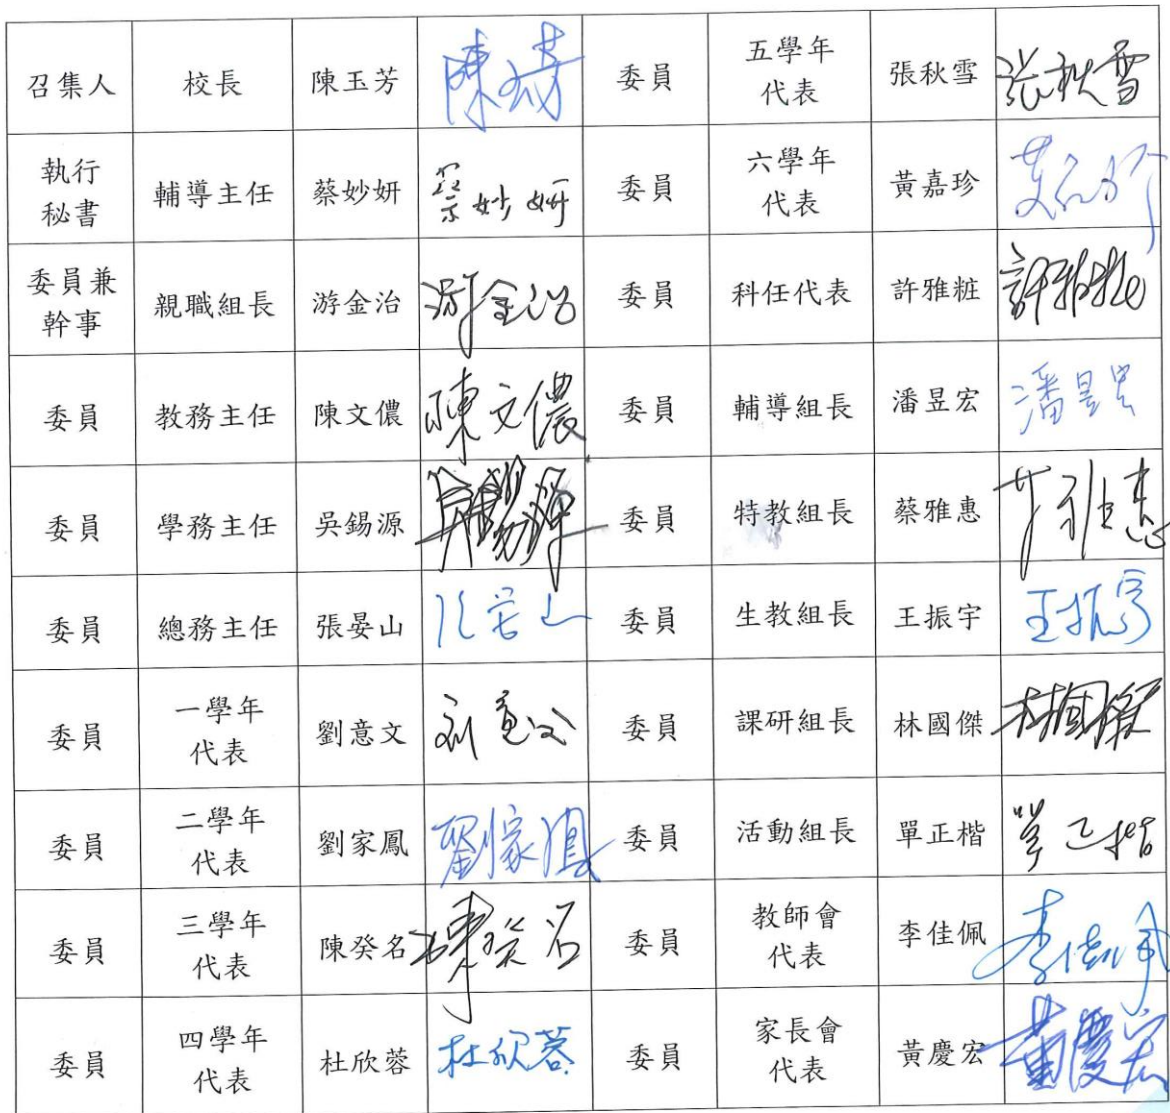 召集人 校長 陳玉芳 陳玉芳 委員 五學年代表 張秋雪 張秋雪
執行秘書 輔導主任 蔡妙妍 蔡妙妍 委員 六學年代表 黃嘉珍
委員兼幹事 親職組長 游金治 游金治 委員 科任代表 許雅粧 許雅粧
委員 教務主任 陳文儂 陳文儂 委員 輔導組長 潘昱宏 潘昱宏
委員 學務主任 吳錫源 委員 特教組長 蔡雅惠 蔡雅惠
委員 總務主任 張晏山 張晏山 委員 生教組長 王振宇 王振宇
委員 一學年代表 劉意文 劉意文 委員 課研組長 林國傑 林國傑
委員 二學年代表 劉家鳳 劉家鳳 委員 活動組長 單正楷 單正楷
委員 三學年代表 陳癸名 陳癸名 委員 教師會代表 李佳佩 李佳佩
委員 四學年代表 杜欣蓉 杜欣蓉 委員 家長會代表 黃慶宏 黃慶宏